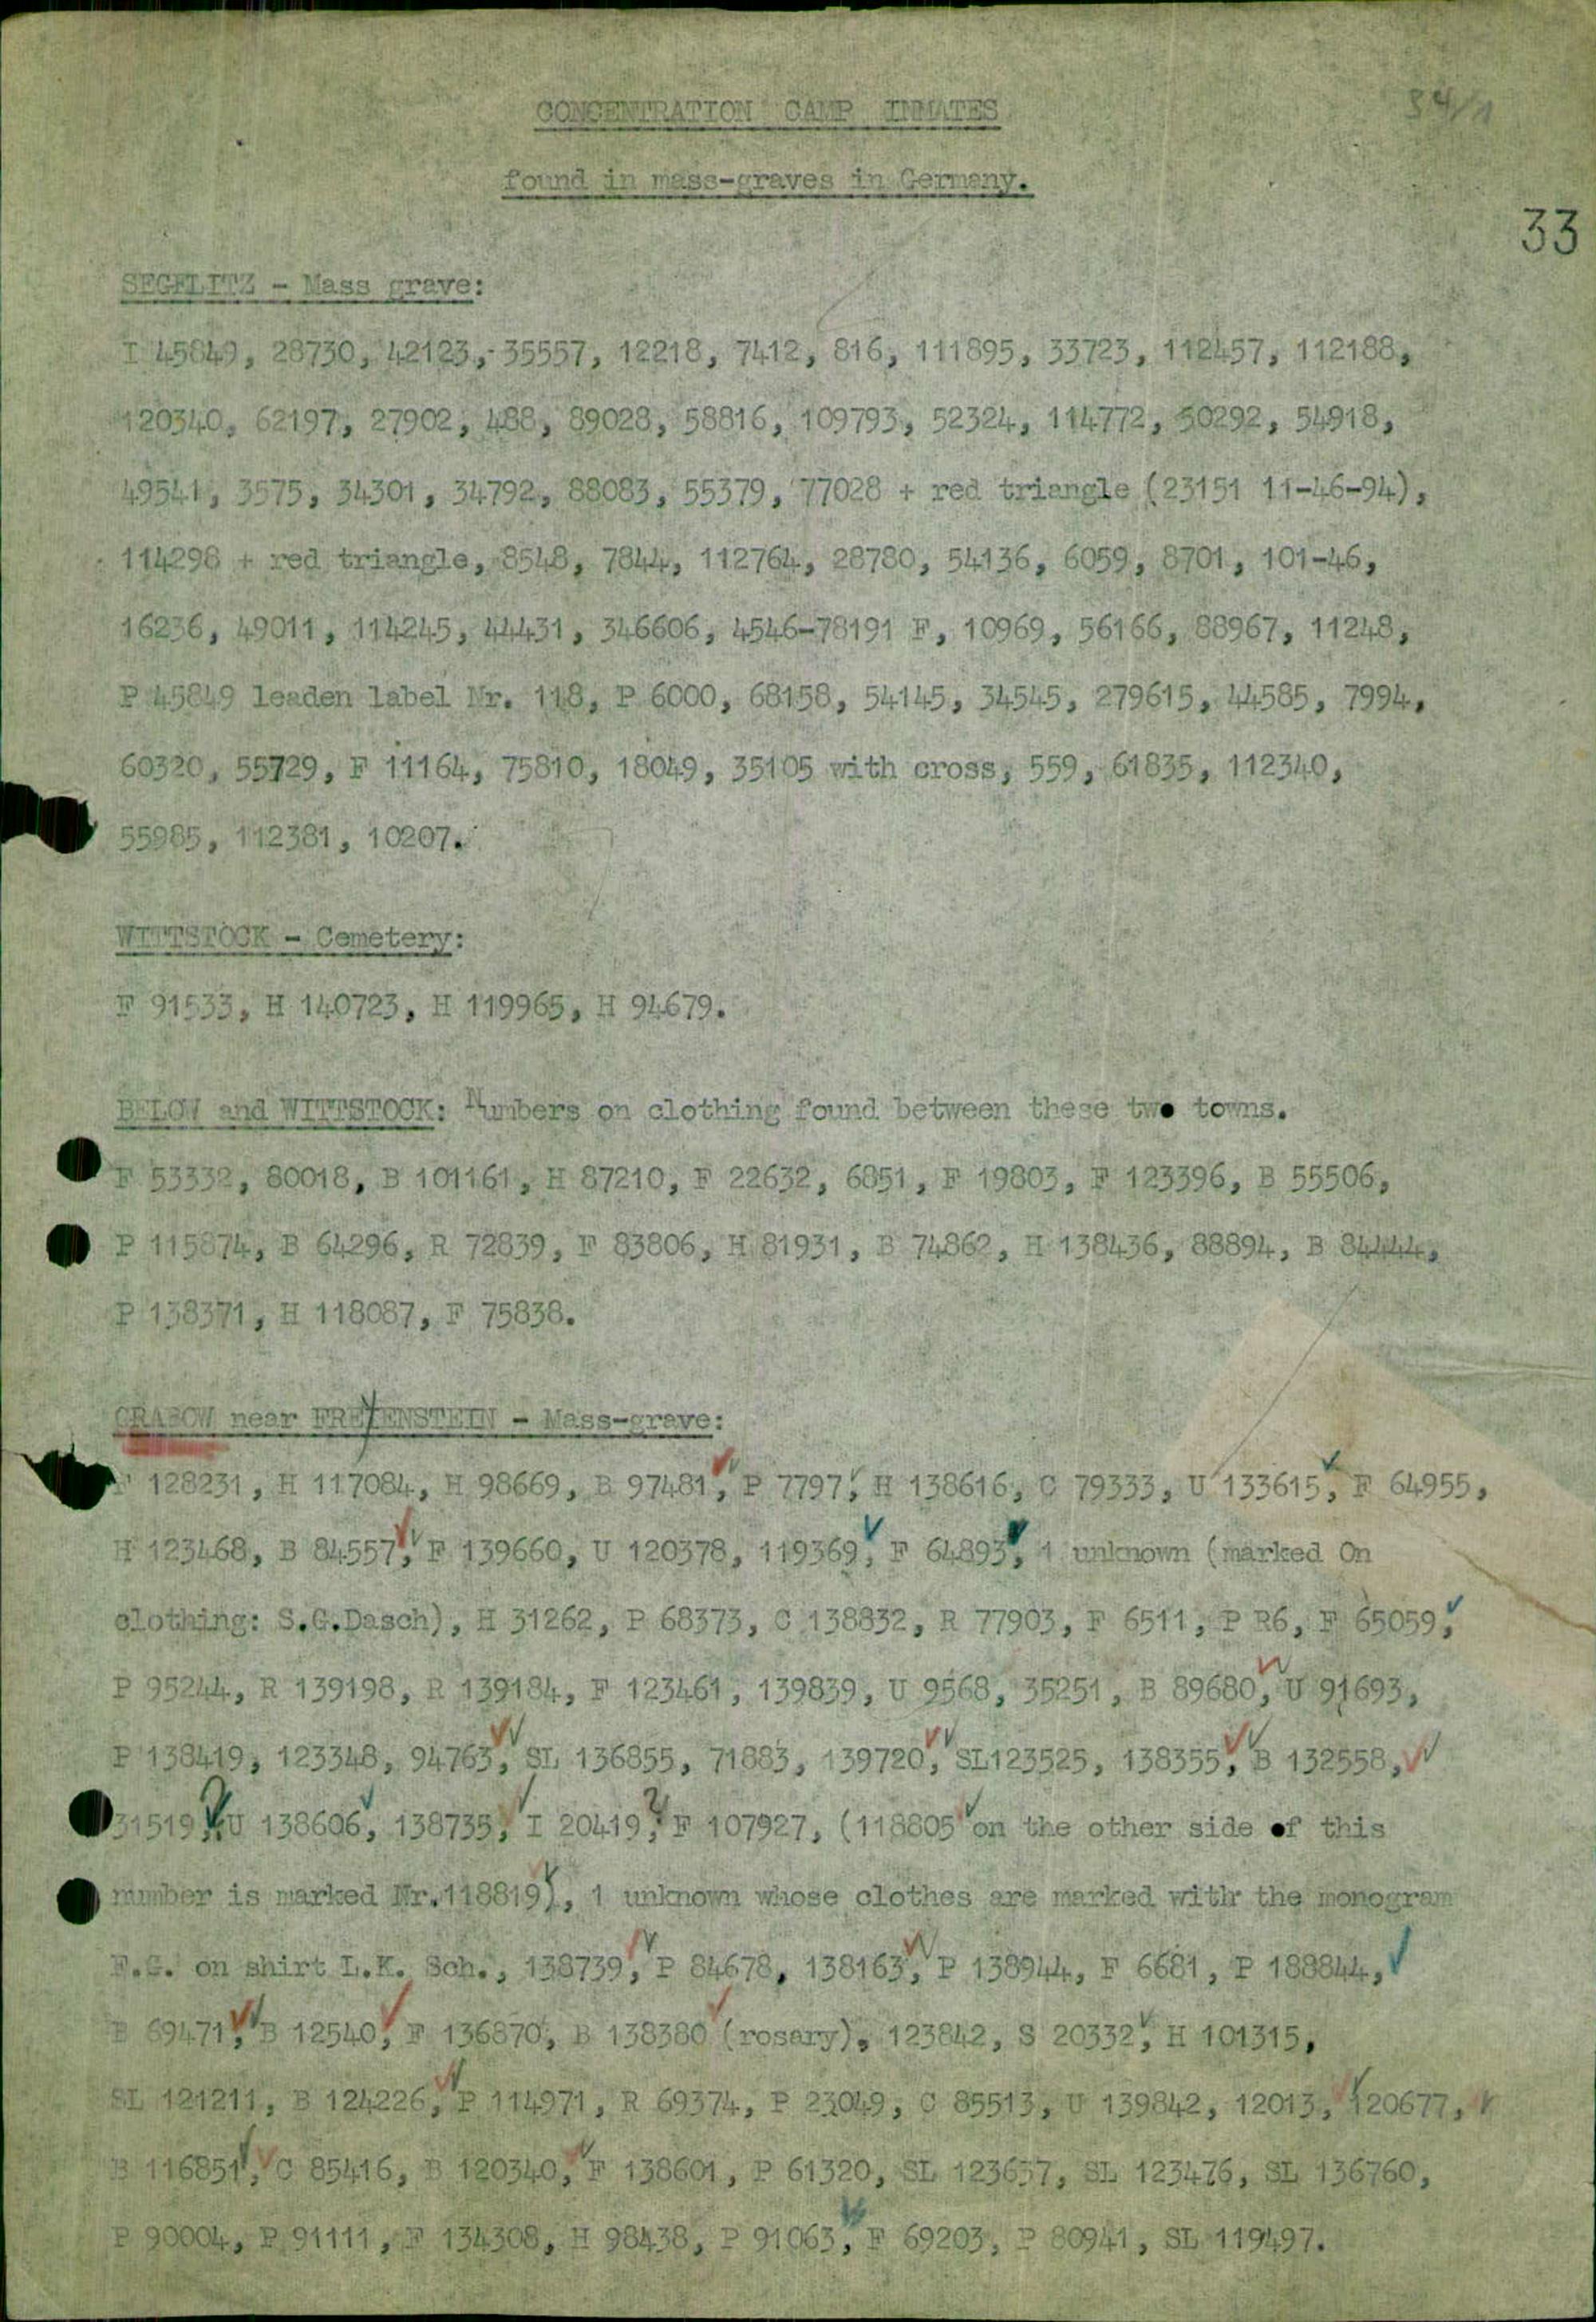 34/1
CONCENTRATION CAMP INMATES
found in mass-graves in Germany.
33
SEGELITZ - Mass grave:
I 45849, 28730, 42123, 35557, 12218, 7412, 816, 111895, 33723, 112457, 112188,
120340, 62197, 27902, 488, 89028, 58816, 109793, 52324, 114772, 50292, 54918,
49541, 3575, 34301, 34792, 88083, 55379, 77028 + red triangle (23151 11-46-94),
114298 + red triangle, 8548, 7844, 112764, 28780, 54136, 6059, 8701, 101-46,
16236, 49011, 114245, 44431, 346606, 4546-78191 F, 10969, 56166, 88967, 11248,
P 45849 leaden label Nr. 118, P 6000, 68158, 54145, 34545, 279615, 44585, 7994,
60320, 55729, F 11164, 75810, 18049, 35105 with cross, 559, 61835, 112340,
55985, 112381, 10207.
WITTSTOCK - Cemetery:
F 91533, H 140723, H 119965, H 94679.
BELOW and WITTSTOCK: Numbers on clothing found between these two towns.
F 53332, 80018, B 101161, H 87210, F 22632, 6851, F 19803, F 123396, B 55506,
P 115874, B 64296, R 72839, F 83806, H 81931, B 74862, H 138436, 88894, B 84444,
P 138371, H 118087, F 75838.
GRABOW near FREYENSTEIN - Mass-grave:
F 128231, H 117084, H 98669, B 97481, P 7797, H 138616, C 79333, U 133615, F 64955,
H 123468, B 84557, F 139660, U 120378, 119369, F 64893, 1 unknown (marked On
clothing: S.G.Dasch), H 31262, P 68373, C 138832, R 77903, F 6511, P R6, F 65059,
P 95244, R 139198, R 139184, F 123461, 139839, U 9568, 35251, B 89680, U 91693,
P 138419, 123348, 94763, SL 136855, 71883, 139720, SL123525, 138355, B 132558,
31519, U 138606, 138735, I 20419, ? F 107927, (118805 on the other side of this
number is marked Nr.118819), 1 unknown whose clothes are marked with the monogram
F.G. on shirt L.K. Sch., 138739, P 84678, 138163, P 138944, F 6681, P 188844,
B 69471, B 12540, F 136870, B 138380 (rosary), 123842, S 20332, H 101315,
SL 121211, B 124226, P 114971, R 69374, P 23049, C 85513, U 139842, 12013, 120677,
B 116851, C 85416, B 120340, F 138601, P 61320, SL 123637, SL 123476, SL 136760,
P 90004, P 91111, F 134308, H 98438, P 91063, F 69203, P 80941, SL 119497.